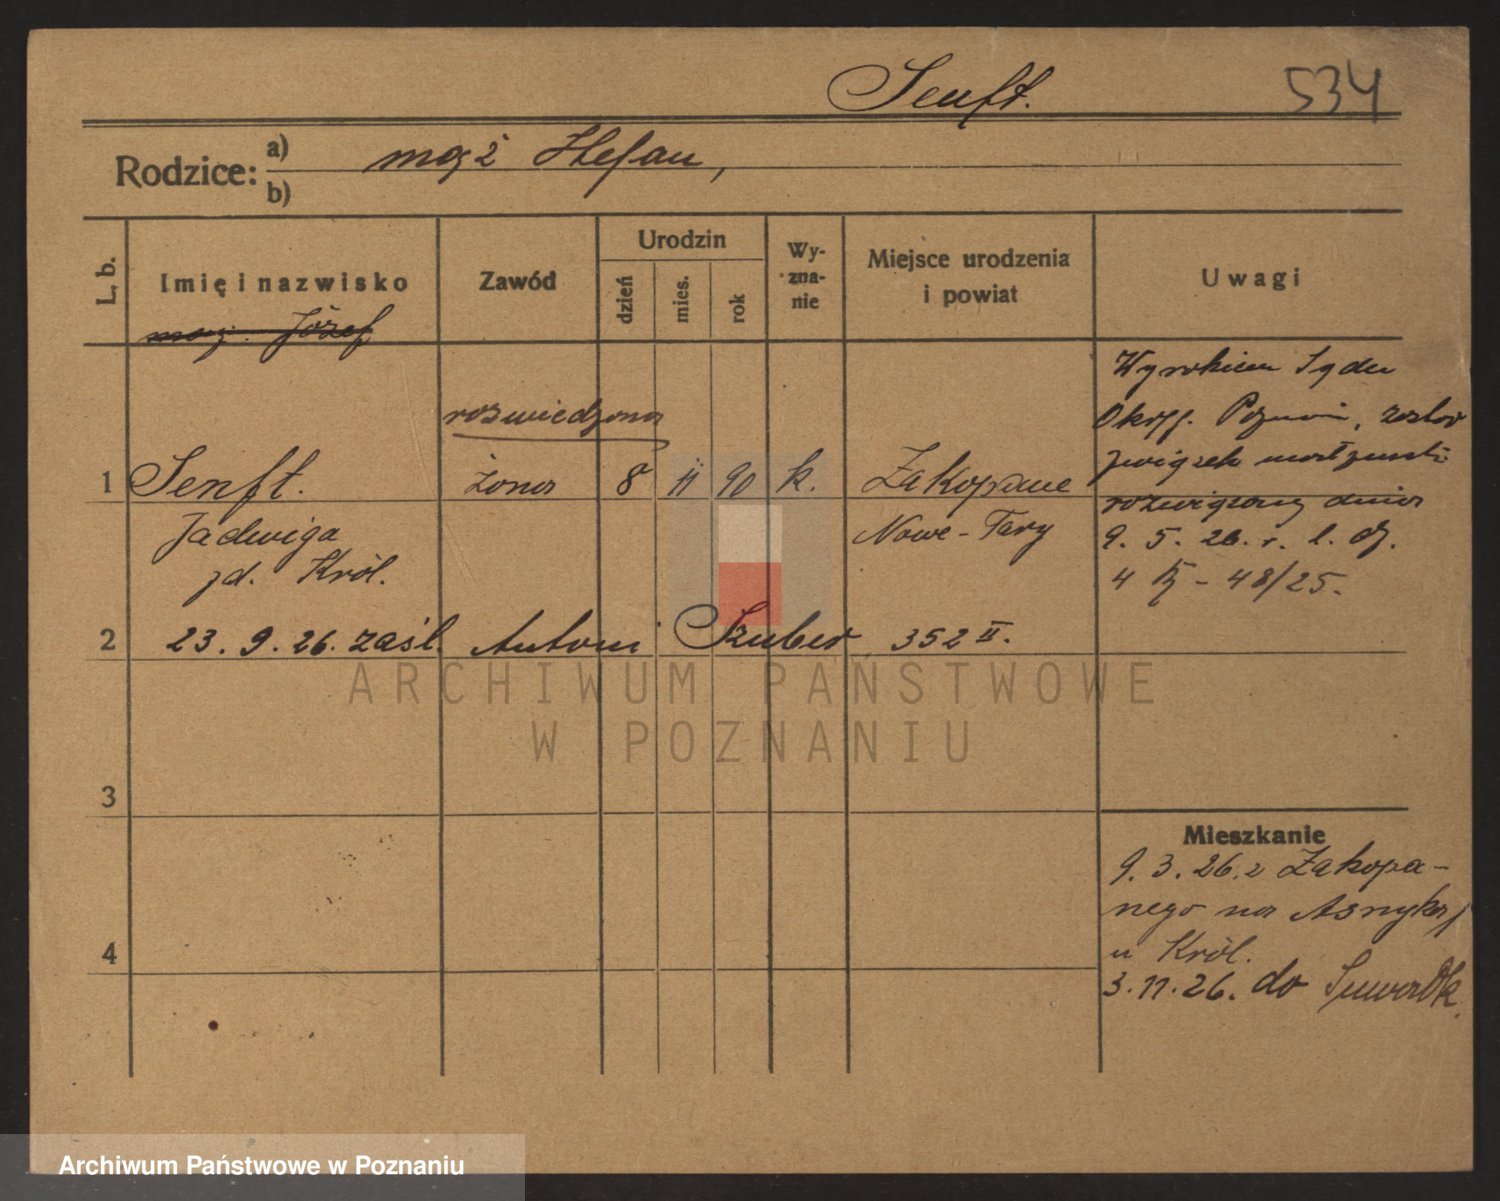 Senft. 534
Rodzice: a) mąż Stefan,
b)
L. b.
Imię i nazwisko
Zawód
Urodzin
dzień
mies.
rok
Wy-
zna-
nie
Miejsce urodzenia
i powiat
Uwagi
mąż. Józef
Wyrokiem Sądu
Okręg. Poznań, został
związek małżeński
rozwiązany dnia
9. 5. 26. r. l. dz.
4 - 48/25.
rozwiedzona
1 Senft. żona 8 11 90 k. Zakopane
Jadwiga Nowe-Targ
zd. Król.
2 23. 9. 26. zaśl. Antoni Szuber 352 II.
3
4
Mieszkanie
9. 3. 26. z Zakopa-
nego na Asnyka
u Król.
3. 11. 26. do Suwałk.
ARCHIWUM PAŃSTWOWE
W POZNANIU
Archiwum Państwowe w Poznaniu